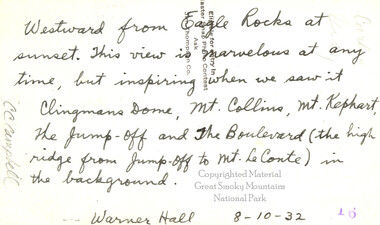 Westward from Eagle Rocks at
sunset. This view is marvelous at any
time, but inspiring when we saw it
Clingmans Dome, Mt. Collins, Mt. Kephart,
The Jump-Off and The Boulevard (the high
ridge from Jump-off to Mt. Le Conte) in
the background.
--- Warner Hall 8-10-32
16
CC Campbell
Eligible for entry in
Print Contest
Ask
Thompson Co.
Copyrighted Material
Great Smoky Mountains
National Park